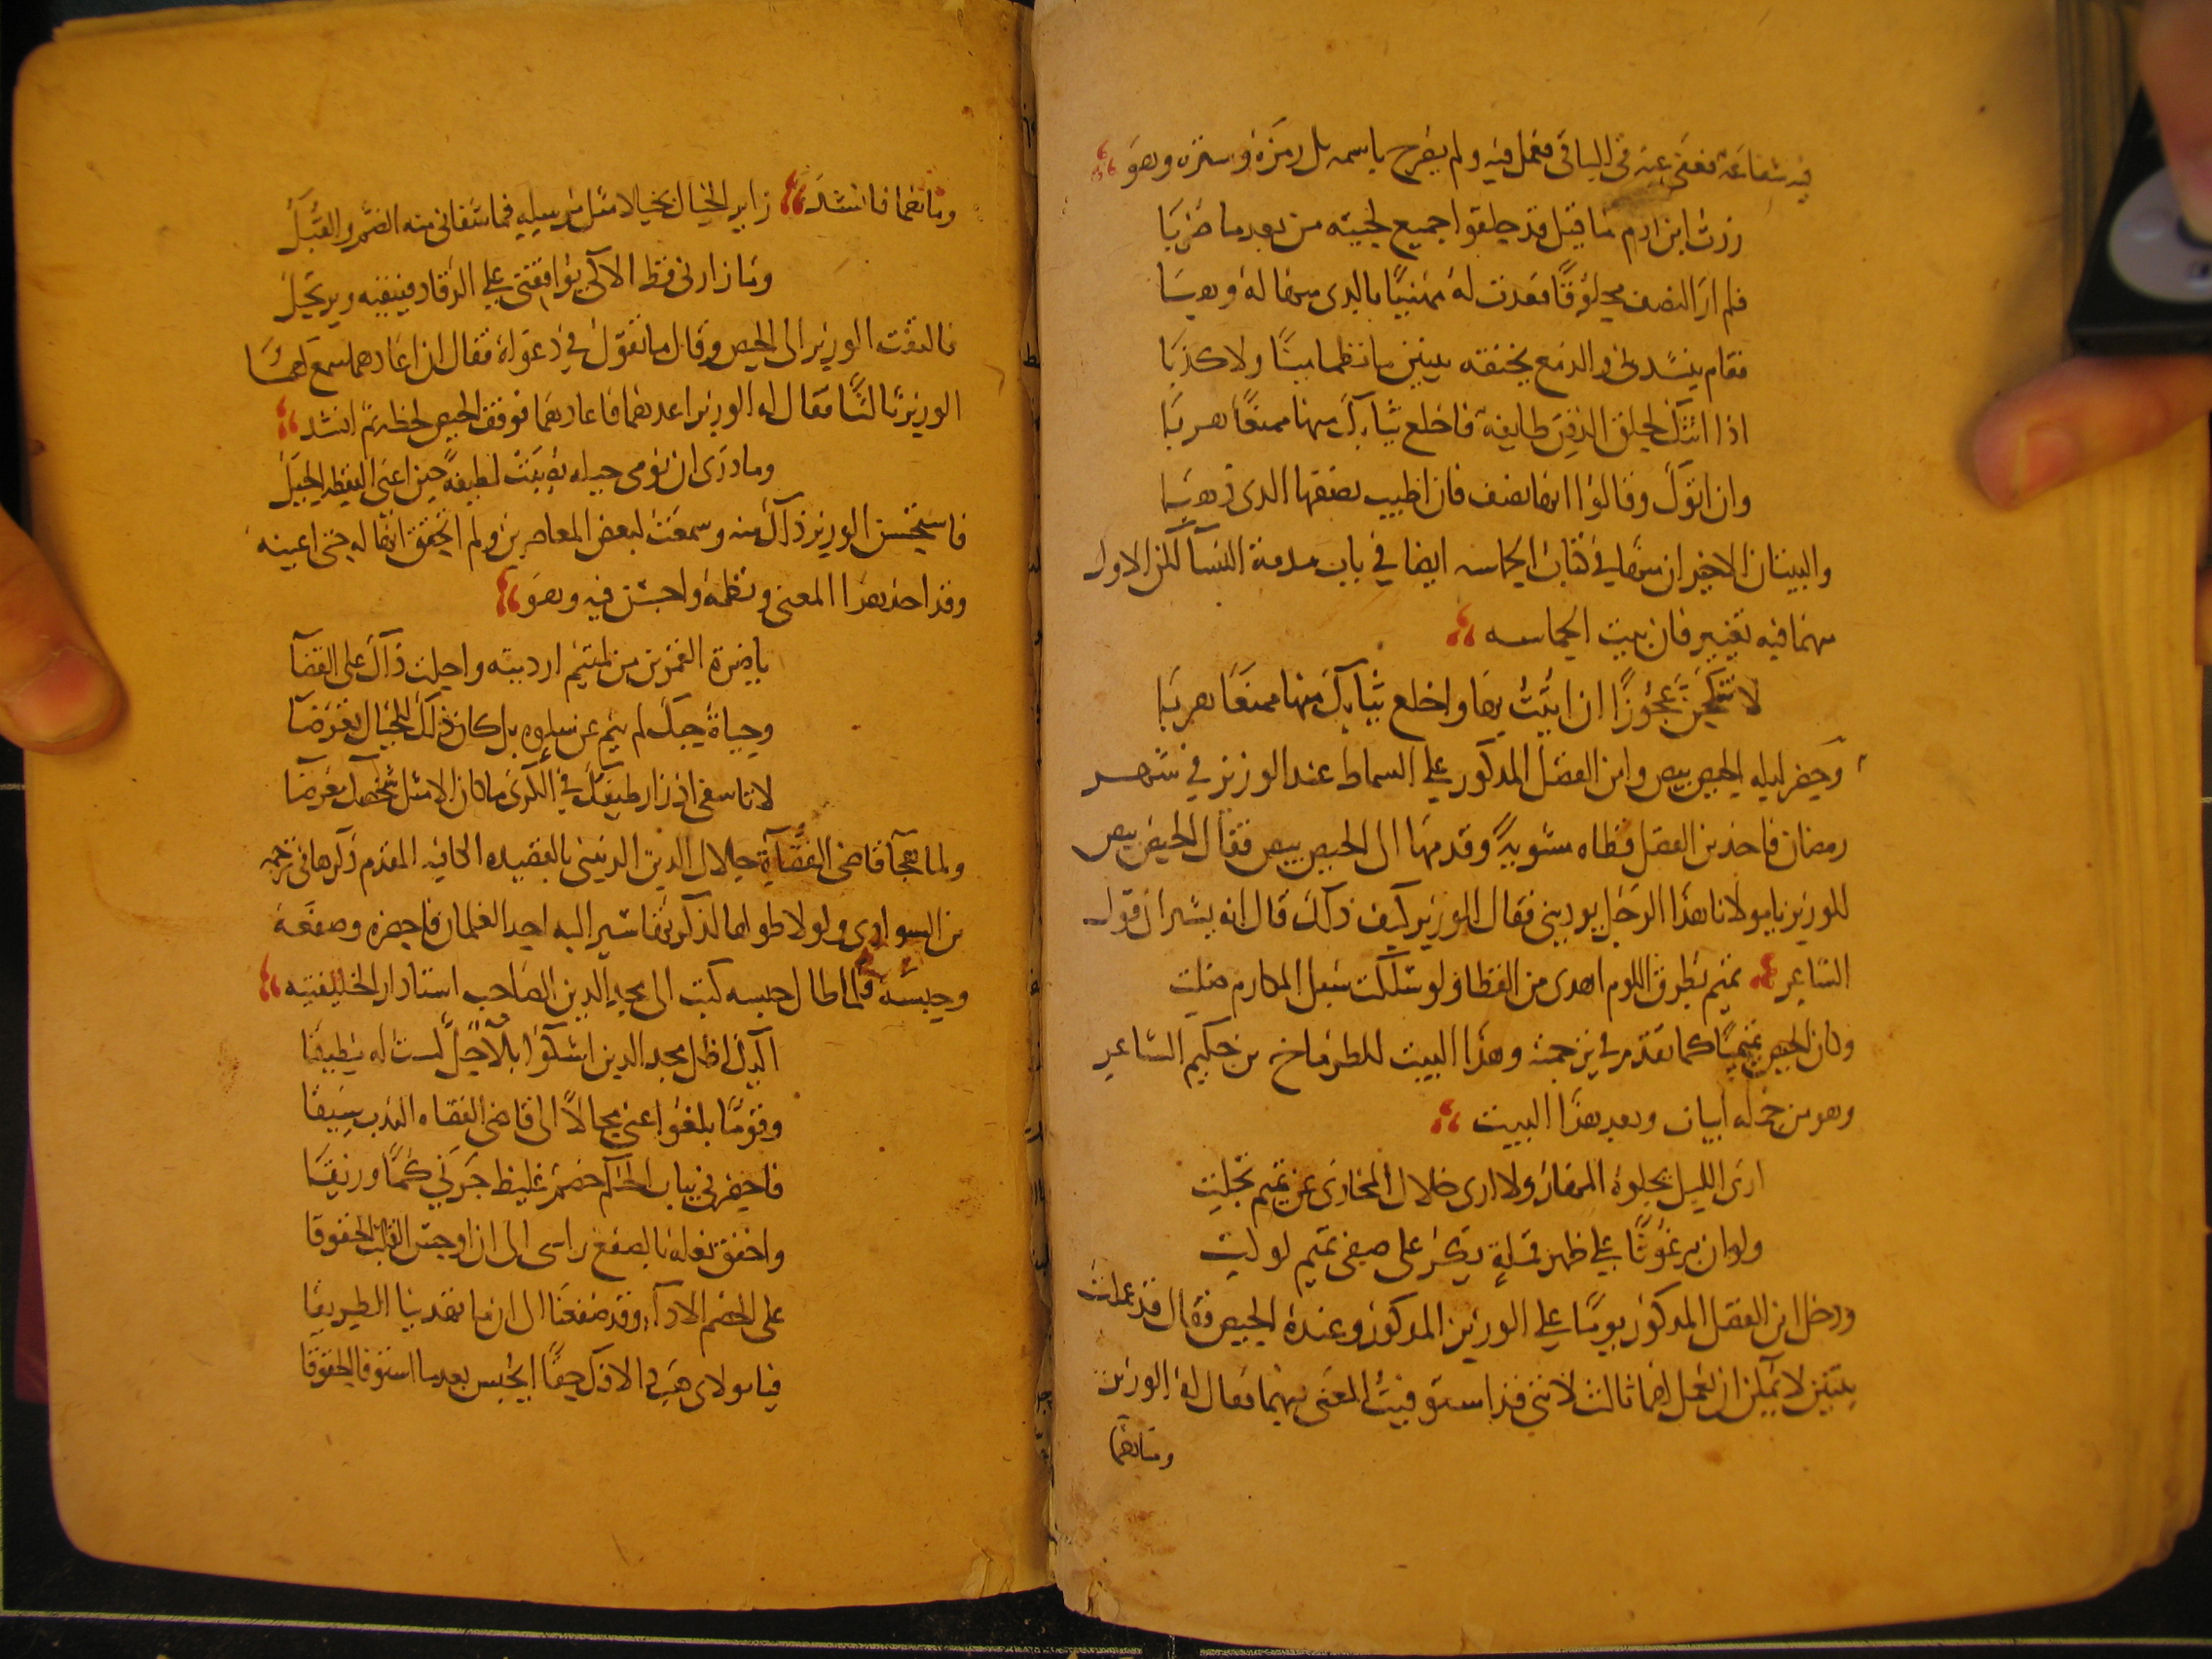 فيه شفاعة فعفى عنه فى الباقى فعمل فيه ولم يصرح باسمه بل رمزه وستره وهو
زرت ابن ادم لما قيل قد حلقوا جميع لحيته من بعد ما ضربا
فلم ار النصف محلوقا فعدت له مهنيا بالذى منها له وهبا
فقام ينشدنى والدمع يخنقه بيتين ما نظما مينا ولا كذبا
اذا اتتك لحلق الذقن طايفة فاخلع ثيابك منها ممعنا هربا
وان اتوك وقالوا انها نصف فان اطيب نصفيها الذى ذهبا
والبيتان الاخيران منها فى كتاب الحماسه ايضا فى باب مذمة النسآ لكن الاول
منهما فيه تغيير فان بيت الحماسه
لا تنكحن عجوزا ان اتيت بها واخلع ثيابك منها ممعنا هربا
وحضر ليله الحيص بيص وابن الفضل المذكور على السماط عند الوزير فى شهر
رمضان فاخذ ابن الفضل قطاه مشوية وقدمها الى الحيص بيص فقال الحيص بيص
للوزير يا مولانا هذا الرجل يوذينى فقال الوزير كيف ذلك قال انه يشير الى قول
الشاعر تميم بطرق اللوم اهدى من القطا ولو سلكت سبل المكارم ضلت
وكان الحيص تميميا كما تقدم فى ترجمته وهذا البيت للطرماح بن حكيم الشاعر
وهو من جمله ابيات وبعد هذا البيت
ارى الليل يجلوه النهار ولا ارى خلال المخازى عن تميم تجلت
ولو ان برغوثا على ظهر قملة يكر على صفى تميم لولت
ودخل ابن الفضل المذكور يوما على الوزير المذكور وعنده الحيص فقال قد عملت
بيتين لا يمكن ان يعمل لهما ثالث لاننى قد استوفيت المعنى فيهما فقال له الوزير
وما هما
وما هما فانشد زاير الخيال بخيلا مثل مرسله فما شفانى منه الضم والقبل
وما زارنى قط الا كى يوافقنى على الرقاد فينفيه ويرتحل
فالتفت الوزير الى الحيص وقال ما تقول فى دعواه فقال ان اعادهما سمع لهما
الوزير ثالثا فقال له الوزير اعدهما فاعادهما فوقف الحيص لحظة ثم انشد
وما درى ان نومى حيله نصبت لطيفه حين اعيى اليقظه الحيل
فاستحسن الوزير ذلك منه وسمعت لبعض المعاصرين ولم اتحقق انها له حتى اعينه
وقد اخذ هذا المعنى ونظمه واحسن فيه وهو
يا ضرة القمرين من لمتيم ارديته واحلت ذاك على القضآ
وحياة حبك لم ينم عن سلوه بل كان ذلك للخيال تعرضا
لا تاسفى ان زار طيفك فى الكرى ما كان الا مثل شخصك معرضا
ولما هجا قاضى القضاة جلال الدين الزينبى بالقصيده الكافيه المقدم ذكرها فى ترجمه
بن السوادى ولولا طولها لذكرتها سير اليه احد الغلمان فاحضره وصفعه
وحبسه فلما طال حبسه كتب الى مجد الدين الصاحب استادار الخليفه
اليك اظل مجد الدين اشكوا بلآ حل لست له مطيقا
وقوما بلغوا عنى محالا الى قاضى القضاه الندب سيقا
فاحضرنى بباب الحكم خصم غليظ جرنى كما وزيقا
واخفق نعله بالصفع راسى الى ان اوجس القلب الخفوقا
على الخصم الادآ وقد صفعنا الى ان ما تهدينا الطريقا
فيا مولاى هب ذا الافك حقا ايحبس بعد ما استوفا الحقوقا